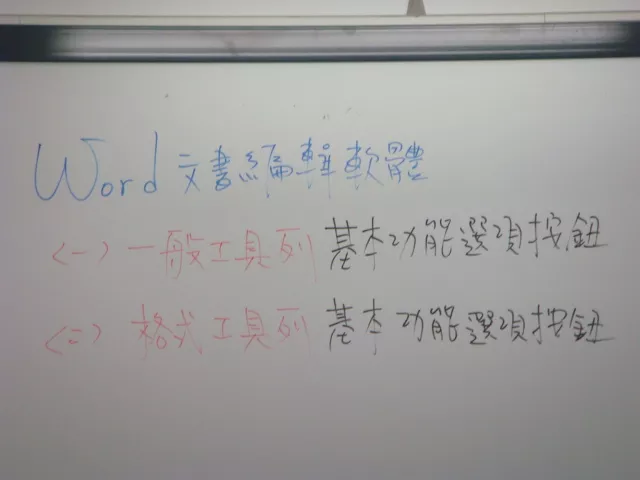 Word 文書編輯軟體
<一> 一般工具列 基本功能選項按鈕
<二> 格式工具列 基本功能選項按鈕